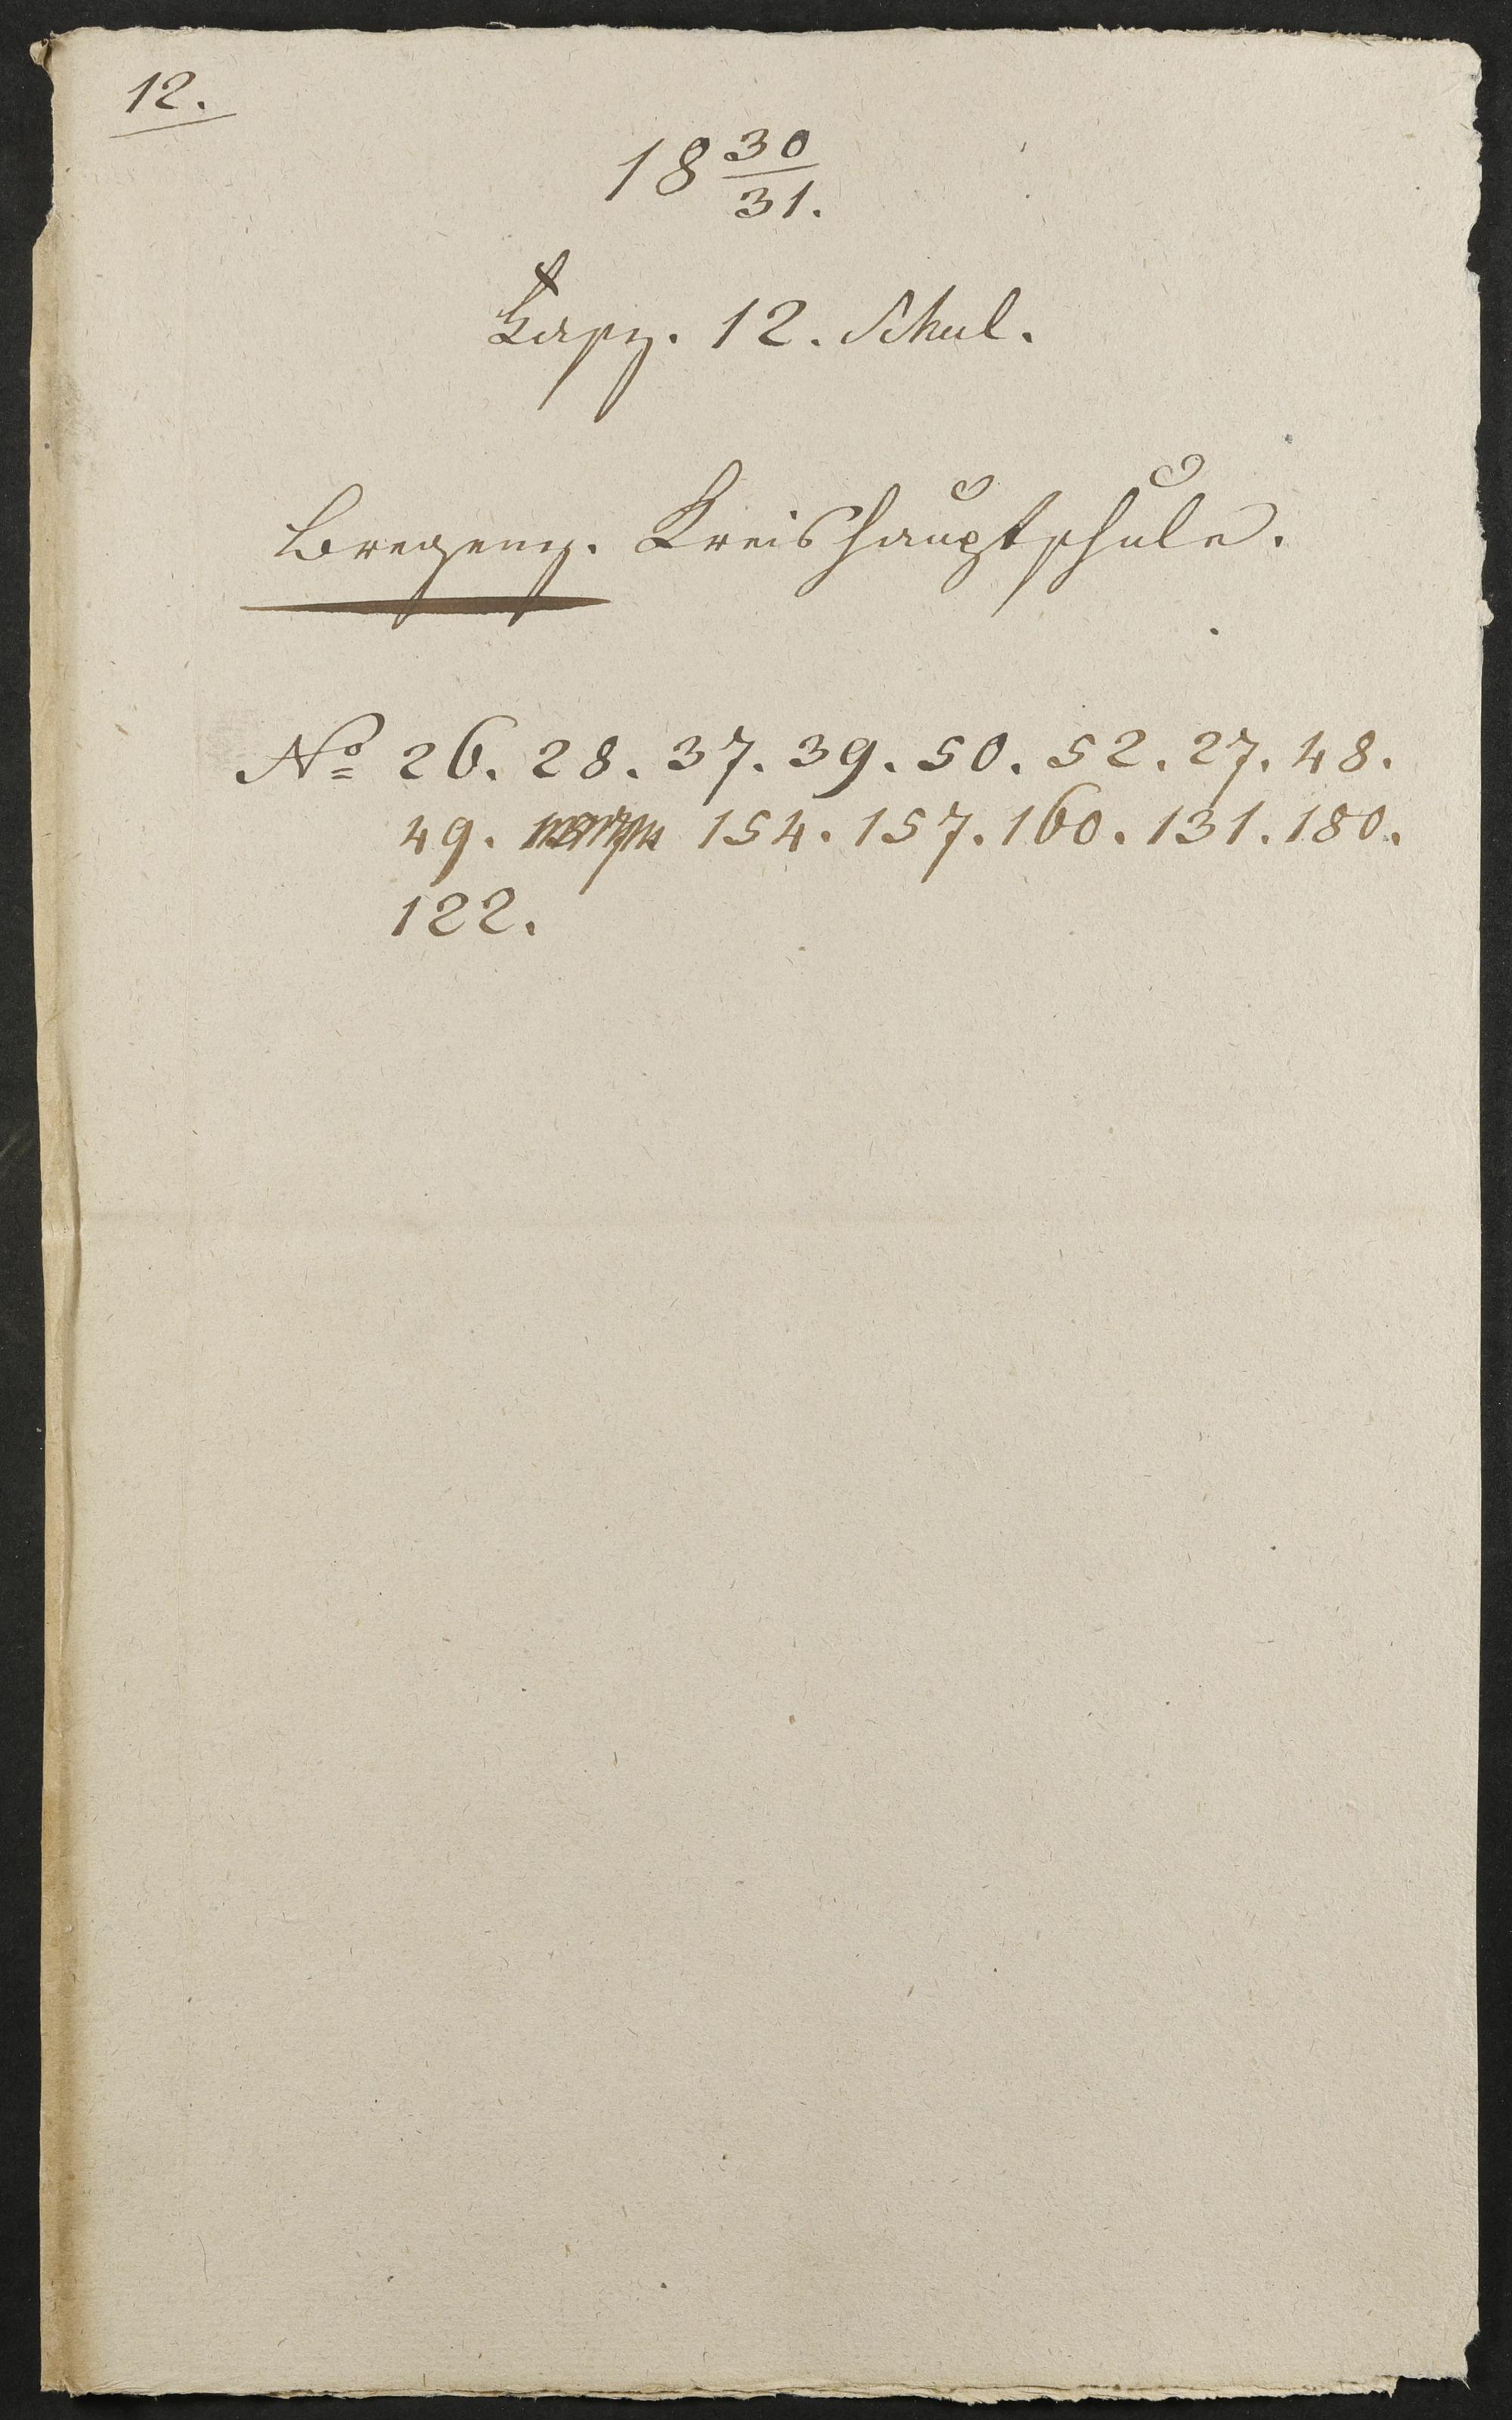 12.
18 30/31.
Fasz. 12. Schul.
Bregenz. Kreishauptschule.
No 26. 28. 37. 39. 50. 52. 27. 48.
49. 154. 157. 160. 131. 180.
122.